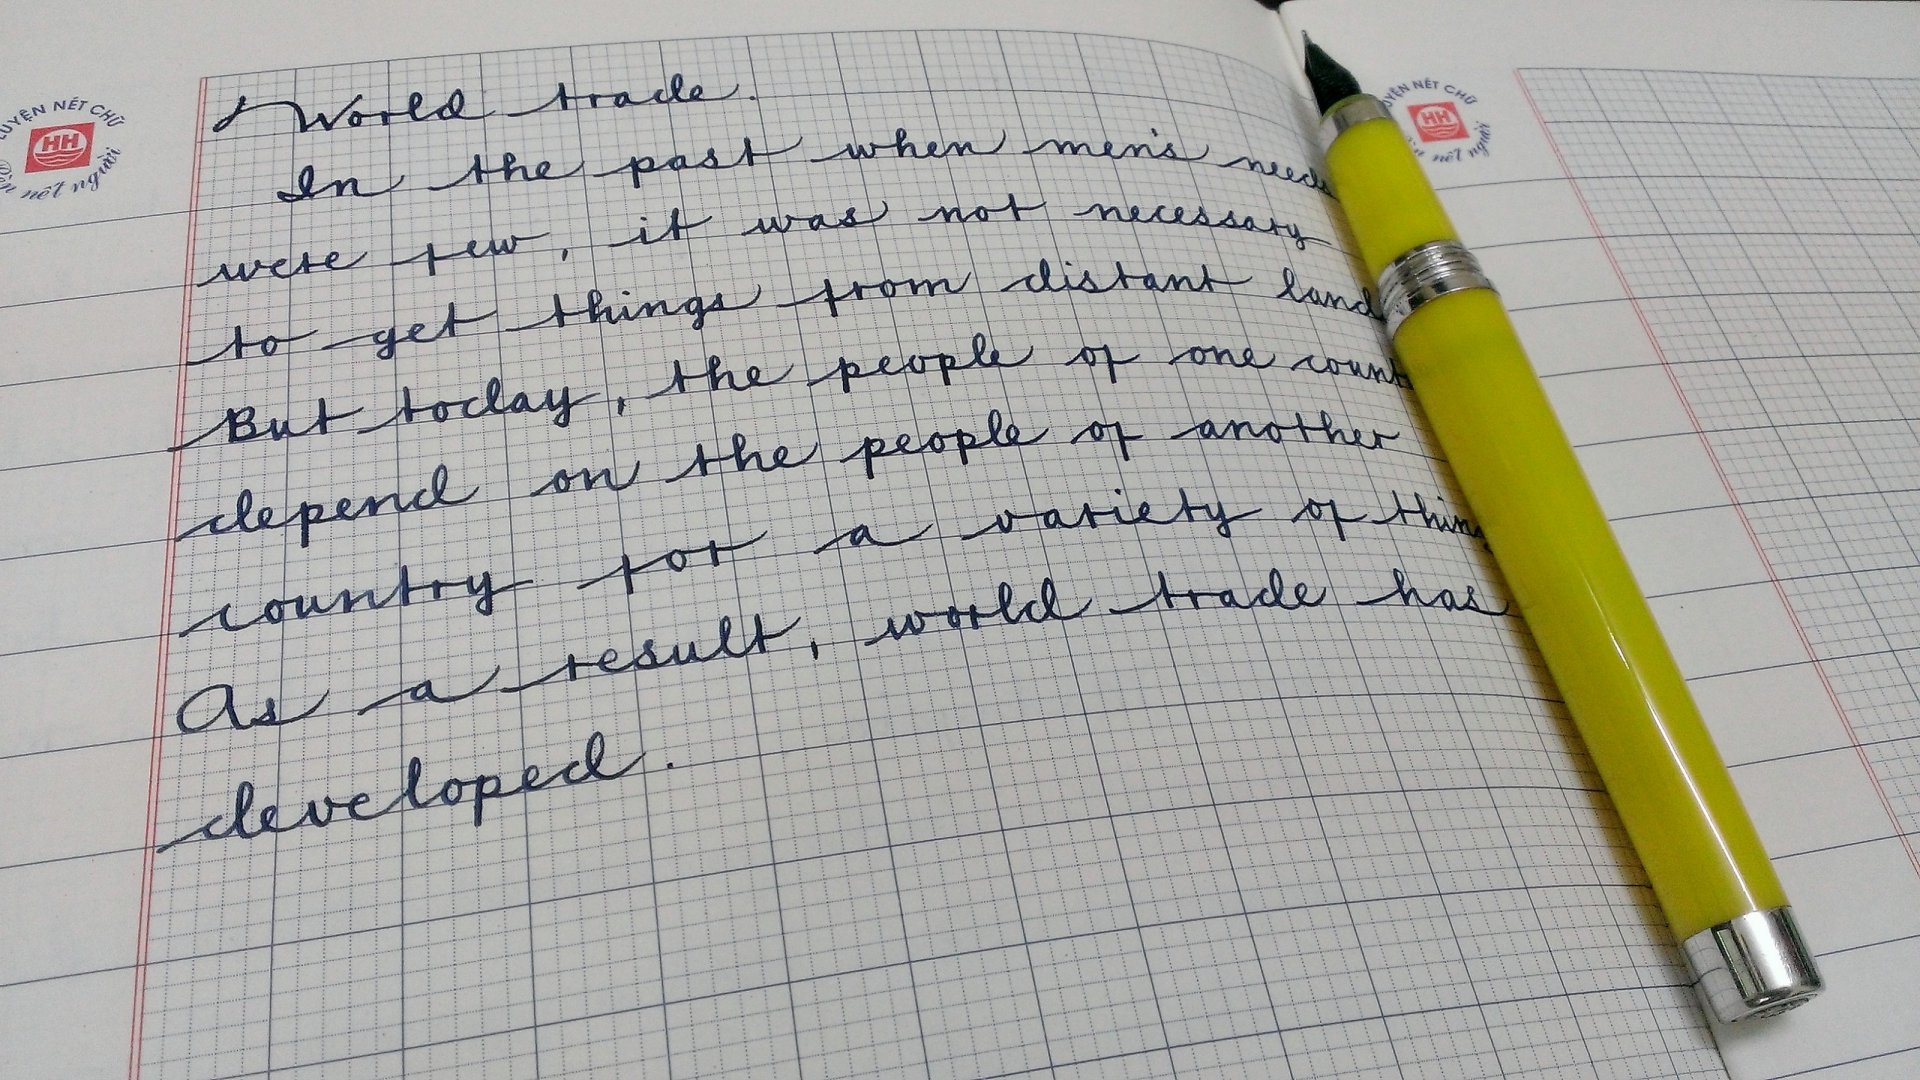 World trade.
In the past when men's needs
were few, it was not necessary
to get things from distant land
But today, the people of one count
depend on the people of another
country for a variety of thing
As a result, world trade has
developed.
LUYỆN NÉT CHỮ
HH
nết người
LUYỆN NÉT CHỮ
HH
nết người